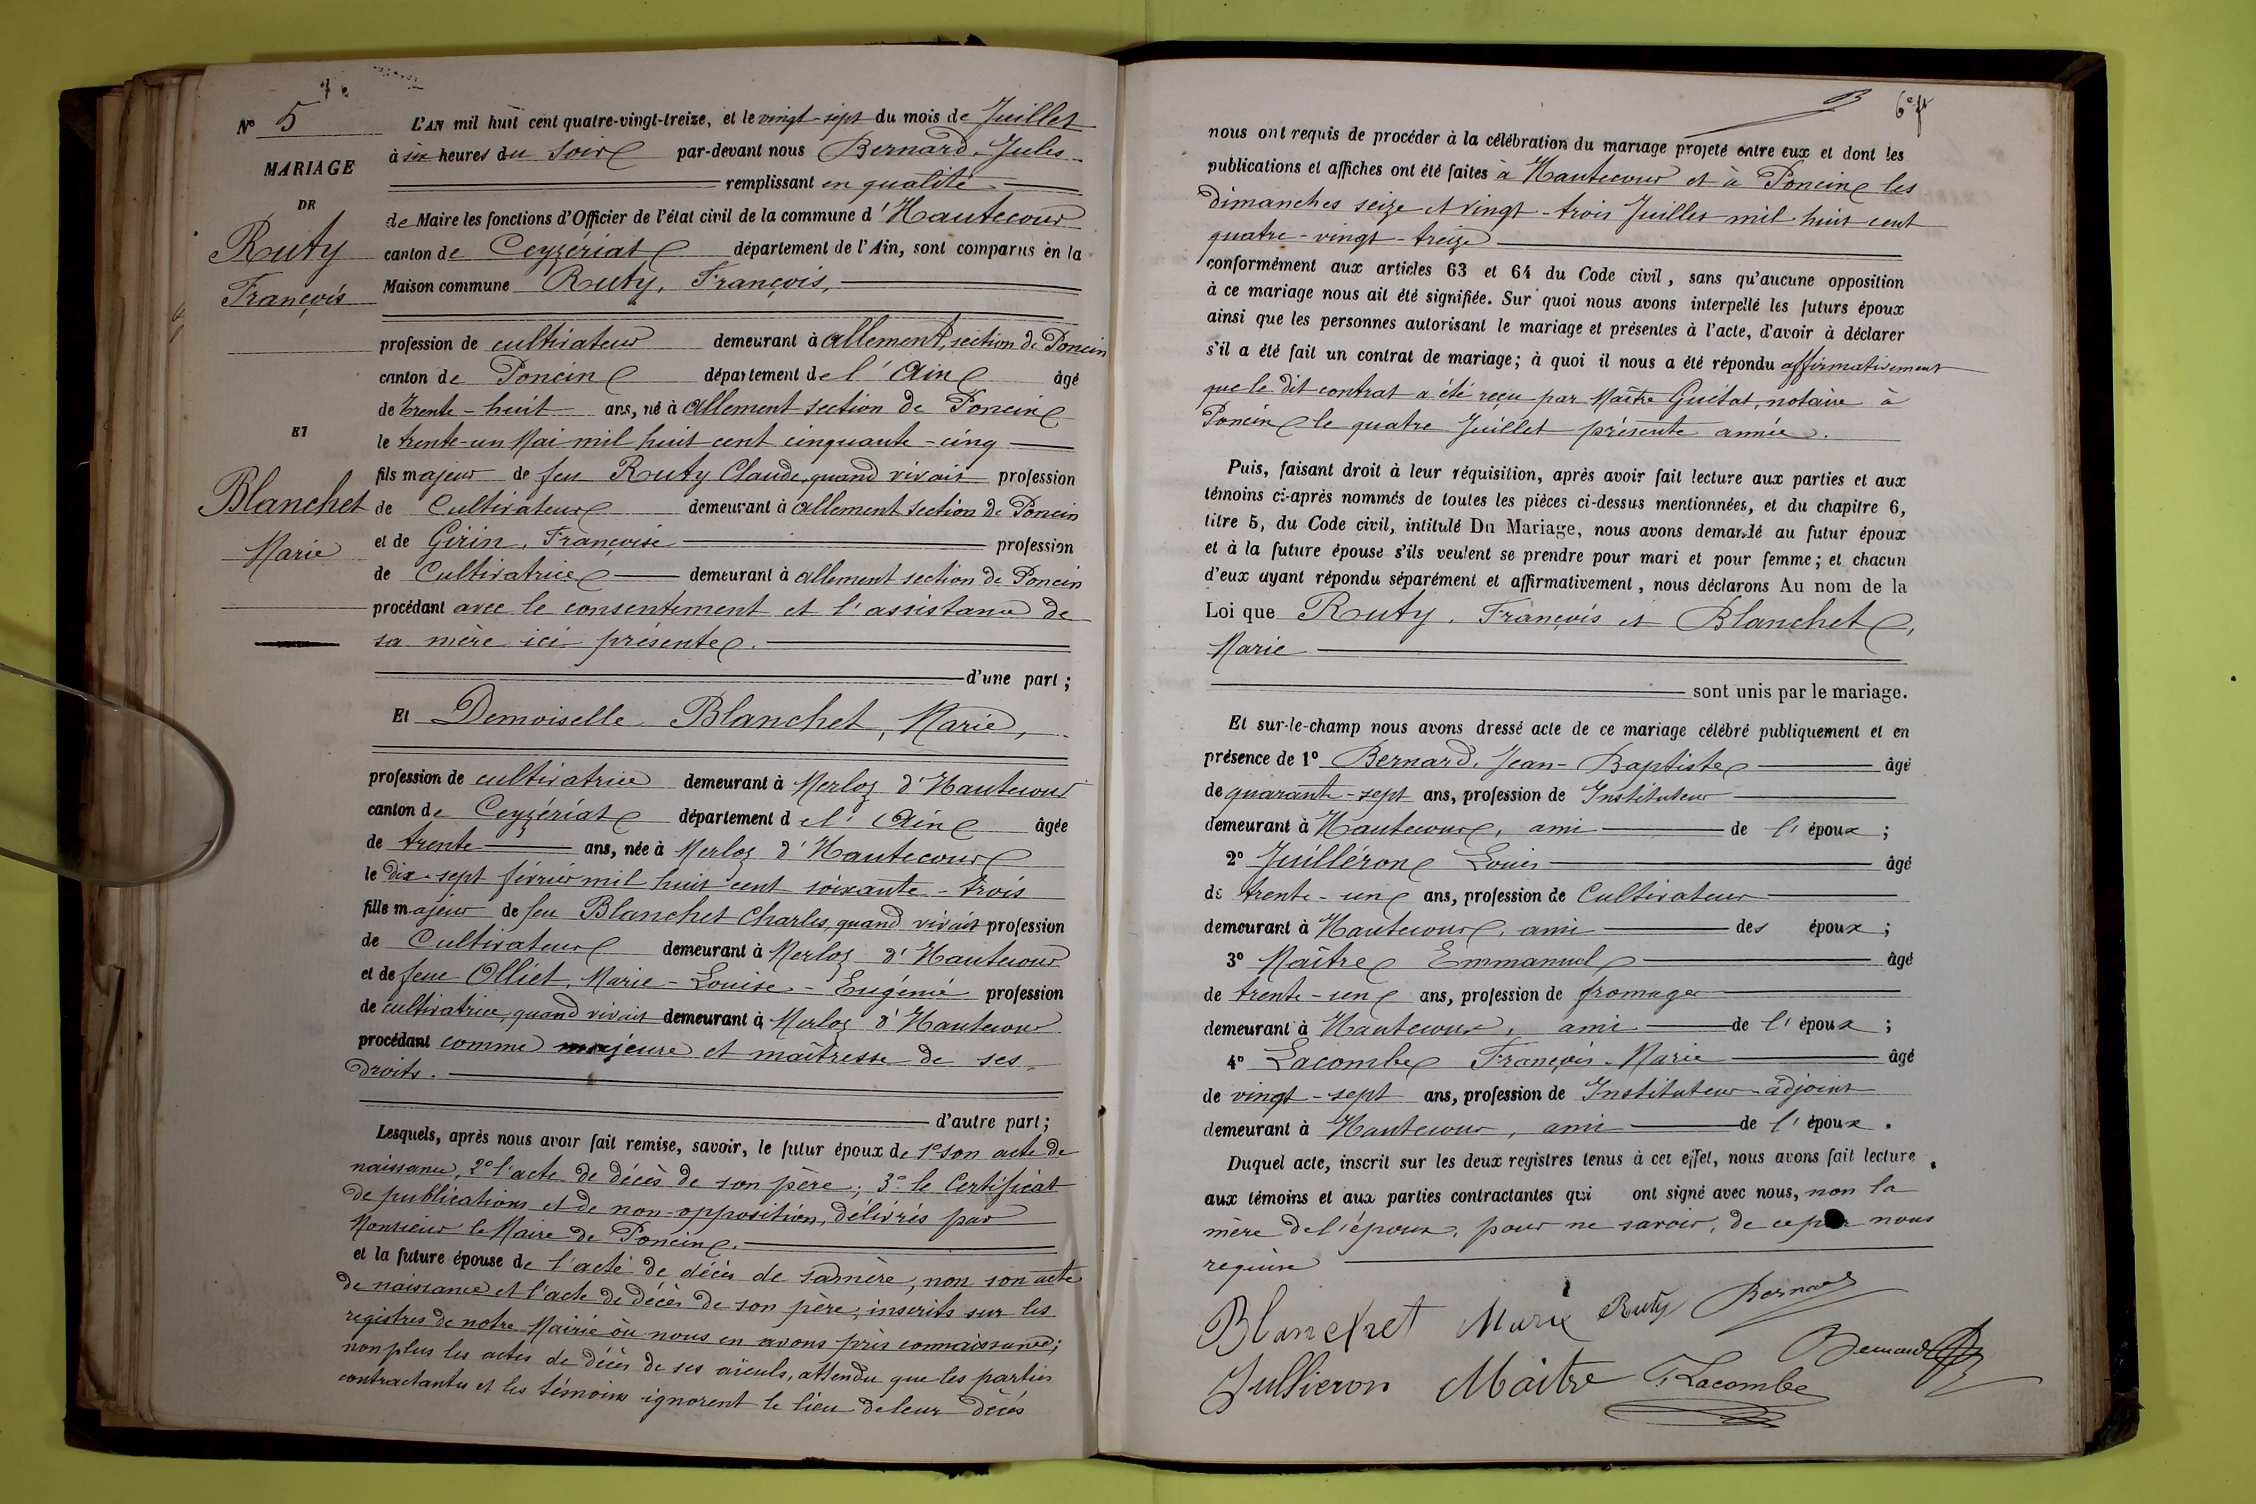 N° 5
MARIAGE
DE
Ruty
François
ET
Blanchet
Marie
L'AN mil huit cent quatre-vingt-treize, et le vingt-sept du mois de Juillet
à six heures du soir par-devant nous Bernard, Jules
remplissant en qualité
de Maire les fonctions d'Officier de l'état civil de la commune d'Hautecour
canton de Ceyzériat département de l'Ain, sont comparus en la
Maison commune Ruty, François,
profession de cultivateur demeurant à Allement, section de Poncin
canton de Poncin département de l'Ain âgé
de trente-huit ans, né à Allement section de Poncin
le trente-un Mai mil huit cent cinquante-cinq
fils majeur de feu Ruty Claude, quand vivait profession
de Cultivateur demeurant à Allement section de Poncin
et de Girin, Françoise profession
de Cultivatrice demeurant à Allement section de Poncin
procédant avec le consentement et l'assistance de
sa mère ici présente.
d'une part;
Et Demoiselle Blanchet, Marie,
profession de cultivatrice demeurant à Merloz d'Hautecour
canton de Ceyzériat département de l'Ain âgée
de trente ans, née à Merloz d'Hautecour
le dix-sept février mil huit cent soixante-trois
fille majeur de feu Blanchet Charles, quand vivait profession
de Cultivateur demeurant à Merloz d'Hautecour
et de feue Olliet, Marie-Louise-Eugénie profession
de cultivatrice, quand vivait demeurant à Merloz d'Hautecour
procédant comme majeure et maîtresse de ses
droits.
d'autre part;
Lesquels, après nous avoir fait remise, savoir, le futur époux de 1° son acte de
naissance, 2° l'acte de décès de son père; 3° le Certificat
de publications et de non-opposition, délivrés par
Monsieur le Maire de Poncin.
et la future épouse de l'acte de décès de sa mère, non son acte
de naissance et l'acte de décès de son père, inscrits sur les
registres de notre Mairie où nous en avons pris connaissance;
non plus les actes de décès de ses aïeuls, attendu que les parties
contractantes et les témoins ignorent le lieu de leur décès
6e f
nous ont requis de procéder à la célébration du mariage projeté entre eux et dont les
publications et affiches ont été faites à Hautecour et à Poncin les
dimanches seize et vingt-trois Juillet mil huit cent
quatre-vingt-treize
conformément aux articles 63 et 64 du Code civil, sans qu'aucune opposition
à ce mariage nous ait été signifiée. Sur quoi nous avons interpellé les futurs époux
ainsi que les personnes autorisant le mariage et présentes à l'acte, d'avoir à déclarer
s'il a été fait un contrat de mariage; à quoi il nous a été répondu affirmativement
que le dit contrat a été reçu par Maître Guétat, notaire à
Poncin le quatre Juillet présente année.
Puis, faisant droit à leur réquisition, après avoir fait lecture aux parties et aux
témoins ci-après nommés de toutes les pièces ci-dessus mentionnées, et du chapitre 6,
titre 5, du Code civil, intitulé Du Mariage, nous avons demandé au futur époux
et à la future épouse s'ils veulent se prendre pour mari et pour femme; et chacun
d'eux ayant répondu séparément et affirmativement, nous déclarons Au nom de la
Loi que Ruty, François et Blanchet,
Marie
sont unis par le mariage.
Et sur-le-champ nous avons dressé acte de ce mariage célébré publiquement et en
présence de 1° Bernard, Jean-Baptiste âgé
de quarante-sept ans, profession de Instituteur
demeurant à Hautecour, ami de l'époux;
2° Juilléron Louis âgé
de trente-un ans, profession de Cultivateur
demeurant à Hautecour, ami des époux;
3° Maître Emmanuel âgé
de trente-un ans, profession de fromager
demeurant à Hautecour, ami de l'époux;
4° Lacombe François-Marie âgé
de vingt-sept ans, profession de Instituteur-adjoint
demeurant à Hautecour, ami de l'époux.
Duquel acte, inscrit sur les deux registres tenus à cet effet, nous avons fait lecture
aux témoins et aux parties contractantes qui ont signé avec nous, non la
mère de l'époux, pour ne savoir, de ce par nous
requise
Blanchet Marie Ruty Bernard
Bernard
Jullieron Maitre F. Lacombe